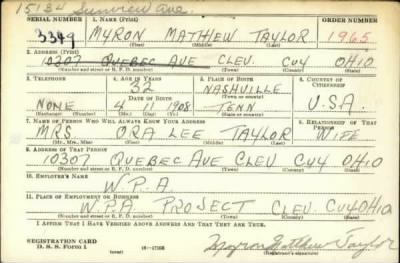 15134 Sunview Ave.
SERIAL NUMBER 1. NAME (Print) ORDER NUMBER
3349 MYRON MATTHEW TAYLOR 1965
(First) (Middle) (Last)
2. ADDRESS (Print)
10307 QUEBEC AVE CLEV. CUY OHIO
(Number and street or R. F. D. number) (Town) (County) (State)
3. TELEPHONE 4. AGE IN YEARS 5. PLACE OF BIRTH 6. COUNTRY OF CITIZENSHIP
32 NASHVILLE
(Town or county)
DATE OF BIRTH
NONE 4 11 1908 TENN U.S.A.
(Exchange) (Number) (Mo.) (Day) (Yr.) (State or country)
7. NAME OF PERSON WHO WILL ALWAYS KNOW YOUR ADDRESS 8. RELATIONSHIP OF THAT PERSON
MRS ORA LEE TAYLOR WIFE
(Mr., Mrs., Miss) (First) (Middle) (Last)
9. ADDRESS OF THAT PERSON
10307 QUEBEC AVE CLEV CUY OHIO
(Number and street or R. F. D. number) (Town) (County) (State)
10. EMPLOYER'S NAME
W.P.A.
11. PLACE OF EMPLOYMENT OR BUSINESS
W.P.A. PROJECT CLEV. CUY OHIO
(Number and street or R. F. D. number) (Town) (County) (State)
I AFFIRM THAT I HAVE VERIFIED ABOVE ANSWERS AND THAT THEY ARE TRUE.
REGISTRATION CARD
D. S. S. Form 1
(over) 16—17105 Myron Matthew Taylor
(Registrant's signature)